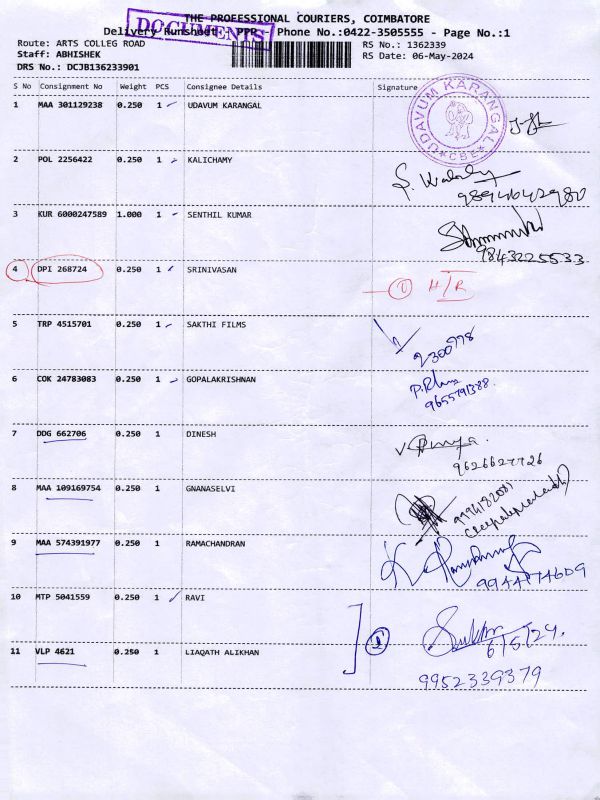 THE PROFESSIONAL COURIERS, COIMBATORE
DOCUMENTS
Delivery Runsheet - PPP - Phone No.:0422-3505555 - Page No.:1
Route: ARTS COLLEG ROAD
RS No.: 1362339
Staff: ABHISHEK
RS Date: 06-May-2024
DRS No.: DCJB136233901
S No Consignment No Weight PCS Consignee Details Signature
1 MAA 301129238 0.250 1 UDAVUM KARANGAL
UDAVUM KARANGAL
* CBE *
2 POL 2256422 0.250 1 KALICHAMY
9894642980
3 KUR 6000247589 1.000 1 SENTHIL KUMAR
9843225533
4 DPI 268724 0.250 1 SRINIVASAN
1 H/R
5 TRP 4515701 0.250 1 SAKTHI FILMS
230098
6 COK 24783083 0.250 1 GOPALAKRISHNAN
7 DDG 662706 0.250 1 DINESH
9626627726
8 MAA 109169754 0.250 1 GNANASELVI
9 MAA 574391977 0.250 1 RAMACHANDRAN
9944174609
10 MTP 5041559 0.250 1 RAVI
6/5/24.
11 VLP 4621 0.250 1 LIAQATH ALIKHAN
9952339379